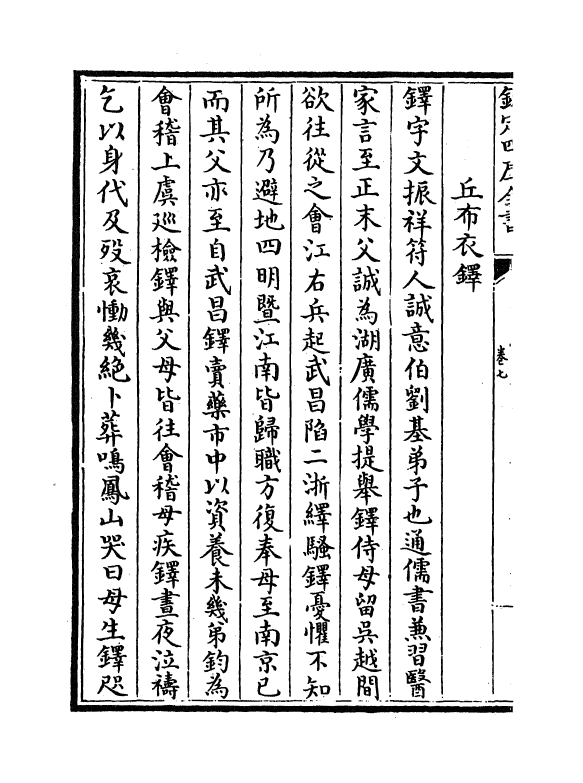 欽定四庫全書
卷七
丘布衣鐸
鐸字文振祥符人誠意伯劉基弟子也通儒書兼習醫
家言至正末父誠為湖廣儒學提舉鐸侍母留吳越間
欲往從之會江右兵起武昌陷二浙繹騷鐸憂懼不知
所為乃避地四明暨江南皆歸職方復奉母至南京已
而其父亦至自武昌鐸賣藥市中以資養未幾弟鈞為
會稽上虞廵檢鐸與父母皆往會稽母疾鐸晝夜泣禱
乞以身代及歿哀慟幾絶卜葬鳴鳳山哭曰母生鐸咫